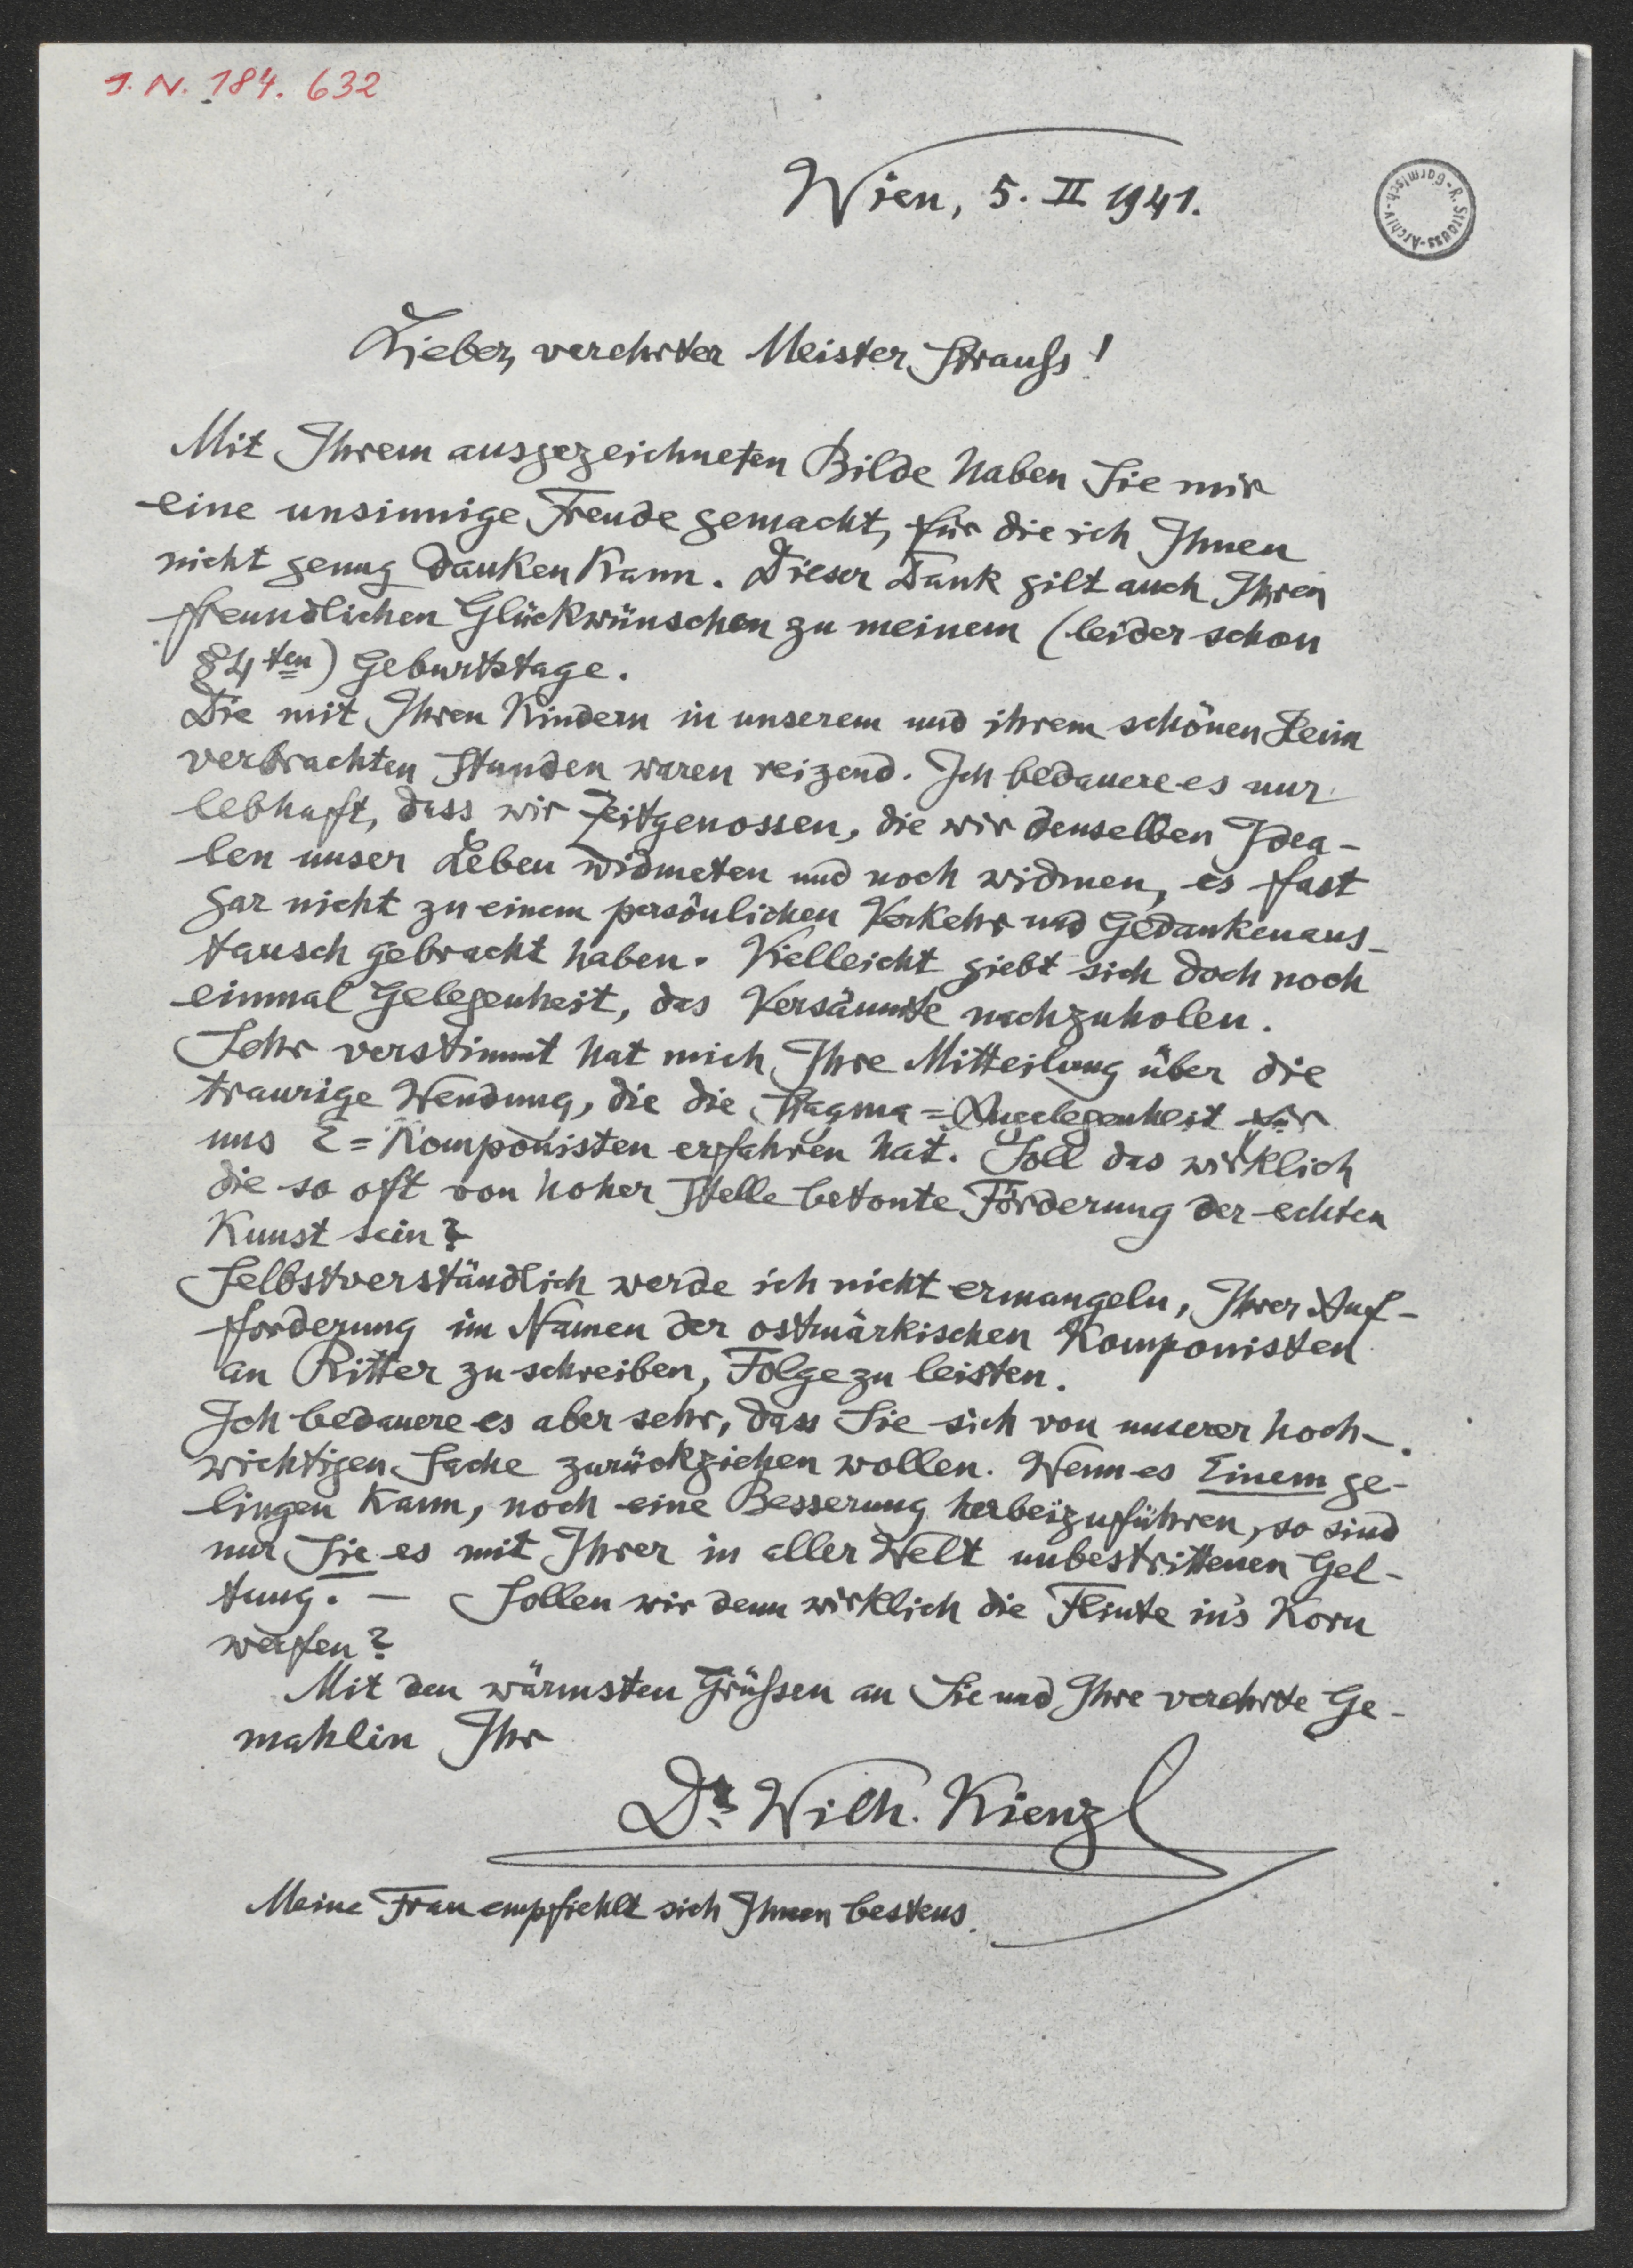 J. N. 184. 632
Wien, 5. II 1941.
R. Strauss-Archiv-Garmisch-
Lieber, verehrter Meister Strauß!
Mit Ihrem ausgezeichneten Bilde haben Sie mir
eine unsinnige Freude gemacht, für die ich Ihnen
nicht genug danken kann. Dieser Dank gilt auch Ihren
freundlichen Glückwünschen zu meinem (leider schon
84ten) Geburtstage.
Die mit Ihren Kindern in unserem und ihrem schönen Heim
verbrachten Stunden waren reizend. Ich bedauere es nur
lebhaft, dass wir Zeitgenossen, die wir denselben Idea-
len unser Leben widmeten und noch widmen, es fast
gar nicht zu einem persönlichen Verkehr und Gedankenaus-
tausch gebracht haben. Vielleicht giebt sich doch noch
einmal Gelegenheit, das Versäumte nachzuholen.
Sehr verstimmt hat mich Ihre Mitteilung über die
traurige Wendung, die die Stagma=Angelegenheit für
uns E=Komponisten erfahren hat. Soll das wirklich
die so oft von hoher Stelle betonte Förderung der echten
Kunst sein?
Selbstverständlich werde ich nicht ermangeln, Ihrer Auf-
forderung im Namen der ostmärkischen Komponisten
an Ritter zu schreiben, Folge zu leisten.
Ich bedauere es aber sehr, dass Sie sich von unserer hoch-
wichtigen Sache zurückziehen wollen. Wenn es Einem ge-
lingen kann, noch eine Besserung herbeizuführen, so sind
nur Sie es mit Ihrer in aller Welt unbestrittenen Gel-
tung. — Sollen wir denn wirklich die Flinte in's Korn
werfen?
Mit den wärmsten Grüßen an Sie und Ihre verehrte Ge-
mahlin Ihr
Dr. Wilh. Kienzl
Meine Frau empfiehlt sich Ihnen bestens.